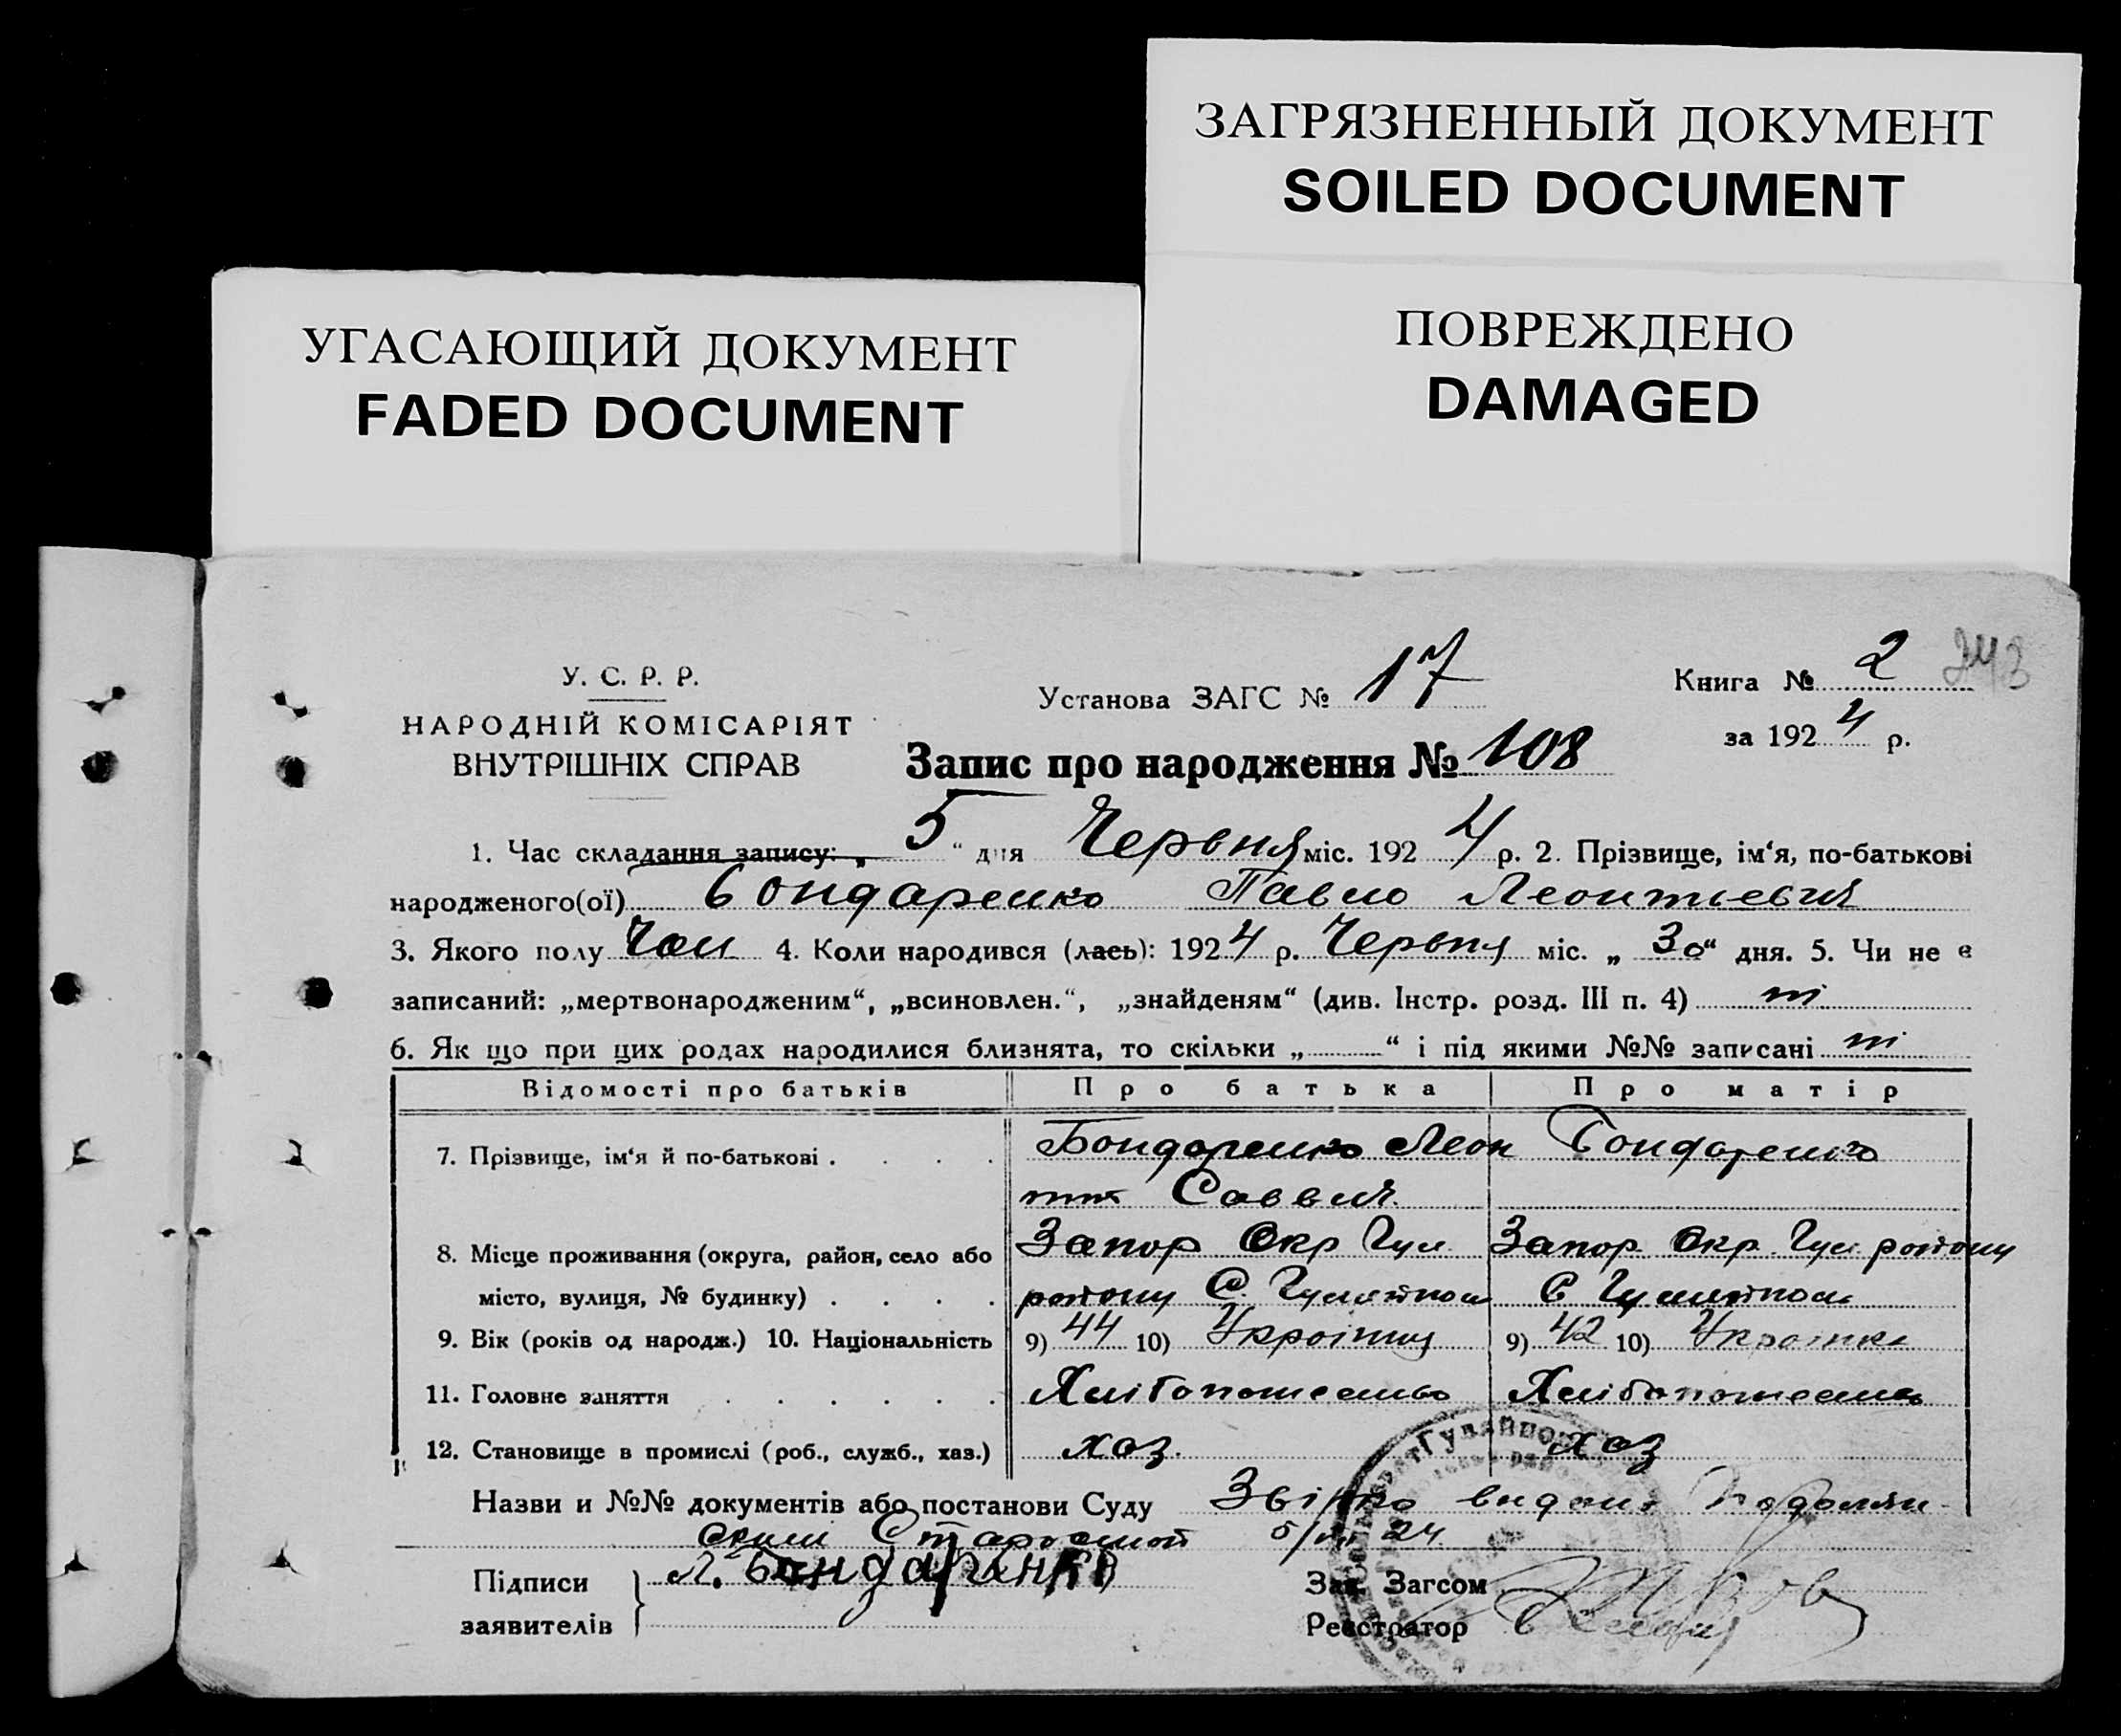 ЗАГРЯЗНЕННЫЙ ДОКУМЕНТ
SOILED DOCUMENT
УГАСАЮЩИЙ ДОКУМЕНТ
FADED DOCUMENT
ПОВРЕЖДЕНО
DAMAGED
У. С. Р. Р.
НАРОДНІЙ КОМІСАРІЯТ
ВНУТРІШНІХ СПРАВ
Установа ЗАГС № 17
Книга № 2 243
за 1924 р.
Запис про народження № 108
1. Час складання запису: „ 5 “ дня Червня міс. 1924 р. 2. Прізвище, ім‘я, по-батькові
народженого(ої) Бондаренко Павло Леонтьевич
3. Якого полу Чол 4. Коли народився (лась): 1924 р. Червня міс. „ 30 “ дня. 5. Чи не є
записаний: „мертвонародженим“, „всиновлен.“, „знайденям“ (див. Інстр. розд. III п. 4) ні
6. Як що при цих родах народилися близнята, то скільки „ “ і під якими №№ записані ні
Відомості про батьків Про батька Про матір
7. Прізвище, ім‘я й по-батькові . . . . Бондаренко Леон Бондаренко
тій Саввич
8. Місце проживання (округа, район, село або Запор Окр Гул Запор Окр Гул району
місто, вулиця, № будинку) . . . . району С. Гуляйполе С Гуляйполе
9. Вік (років од народж.) 10. Національність 9) 44 10) Українец 9) 42 10) Українка
11. Головне заняття . . . . . . Хлібопашество Хлібопашество
12. Становище в промислі (роб., служб., хаз.) хаз. хаз
Назви и №№ документів або постанови Суду видана Подолян-
ским Старостой 24
Підписи Л. Бандаринко
заявителів
Зав. Загсом
Реєстратор